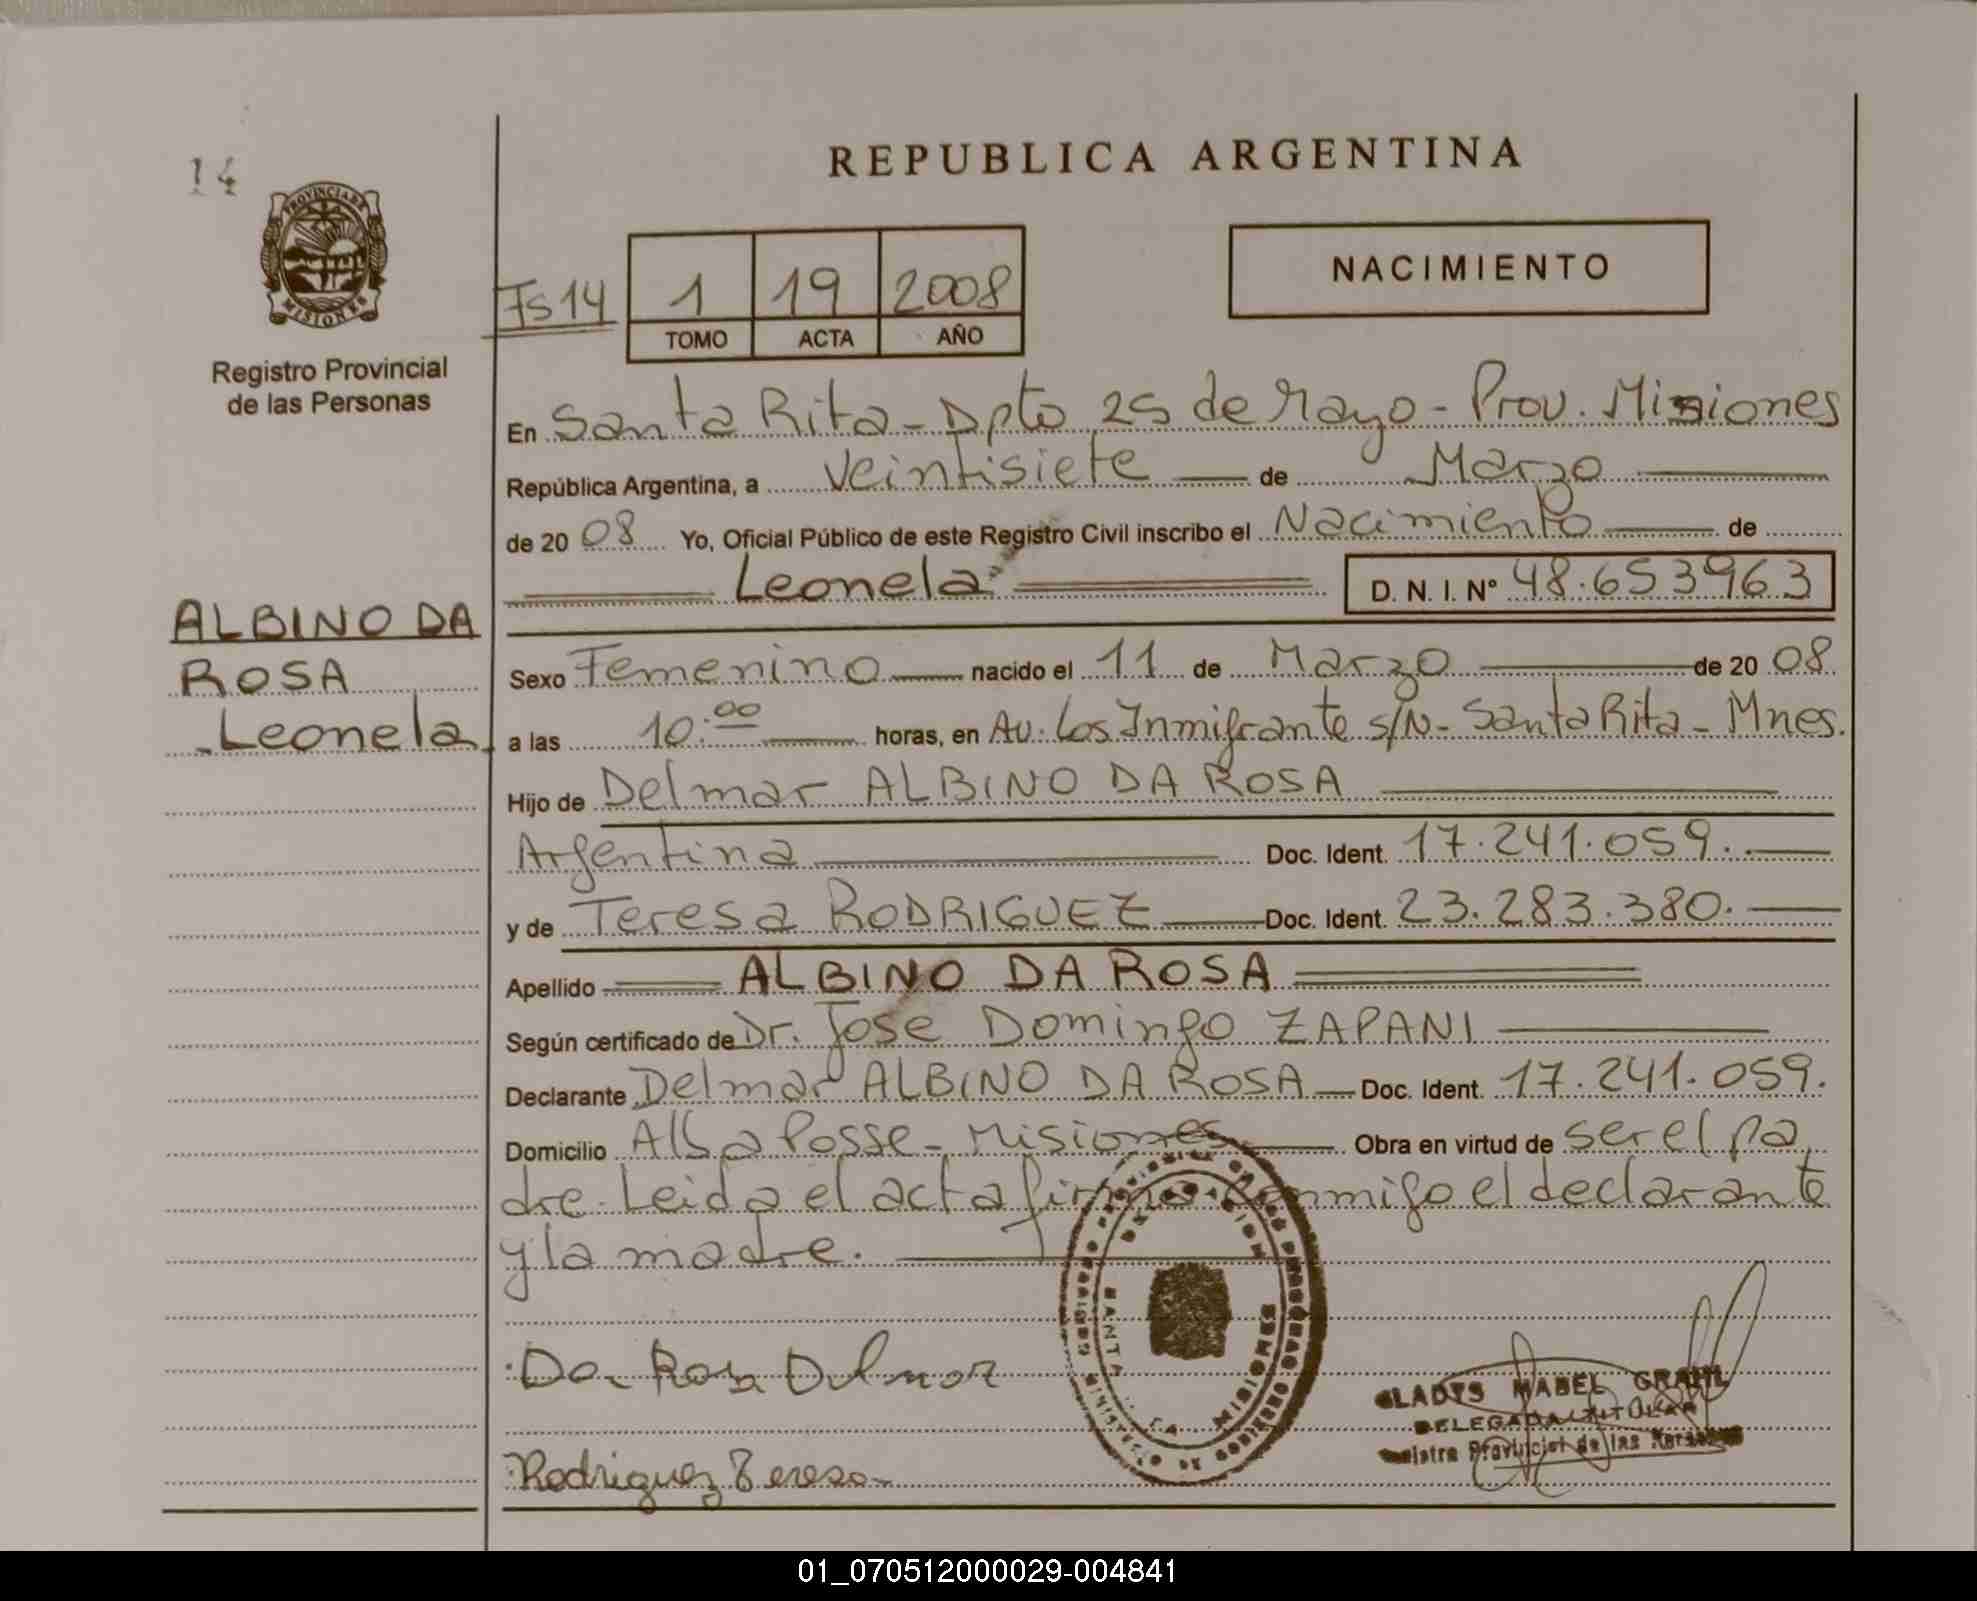 14
REPUBLICA ARGENTINA
PROVINCIA DE
MISIONES
Registro Provincial
de las Personas
Fs 14
1 19 2008
TOMO ACTA AÑO
NACIMIENTO
En Santa Rita - Dpto 25 de Mayo - Prov. Misiones
República Argentina, a veintisiete de Marzo
de 20 08 Yo, Oficial Público de este Registro Civil inscribo el Nacimiento de
Leonela D. N. I. N° 48.653963
ALBINO DA
ROSA
Leonela
Sexo Femenino nacido el 11 de Marzo de 20 08
a las 10:00 horas, en Av. Los Inmigrante s/N - Santa Rita - Mnes.
Hijo de Delmar ALBINO DA ROSA
Argentina Doc. Ident. 17.241.059.
y de Teresa RODRIGUEZ Doc. Ident. 23.283.380.
Apellido ALBINO DA ROSA
Según certificado de Dr. Jose Domingo ZAPANI
Declarante Delmar ALBINO DA ROSA Doc. Ident. 17.241.059.
Domicilio Alba Posse - Misiones Obra en virtud de ser el pa
dre. Leida el acta firma conmigo el declarante
y la madre.
Da Rosa Delmar
Rodriguez Teresa
SANTA
GLADYS MABEL GRAHL
DELEGADA TITULAR
Provincial de las
01_070512000029-004841